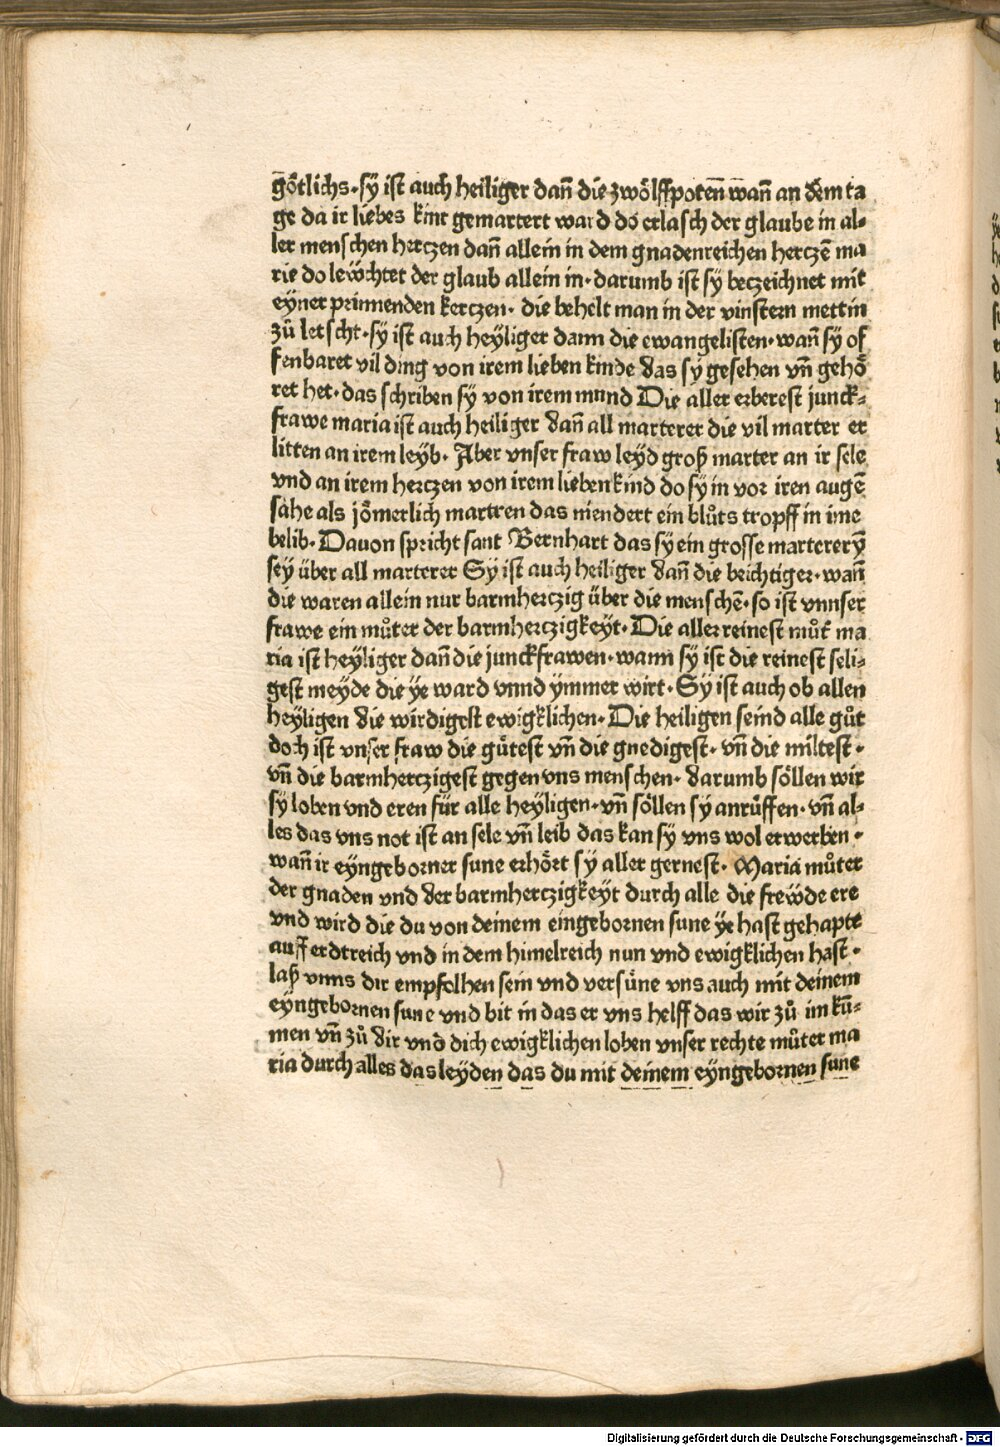 götlichs·sÿ ist auch heiliger dañ die zwölffpoten̄ wañ an dem ta
ge da ir liebes kint gemartert ward do erlasch der glaube in al⸗
ler menschen hertzen dañ allein in dem gnadenreichen hertzē ma
rie do lewchtet der glaub allein in·darumb ist sy betzeichnet mit
eyner prinnenden kertzen· die behelt man in der vinstern mettin
zů letscht·sy ist auch heyliger dann die ewangelisten·wañ sy of
fenbaret vil ding von irem lieben kinde das sy gesehen vñ gehö
ret het·das schriben sy von irem mund Die aller erberest junck⸗
frawe maria ist auch heiliger dañ all marterer die vil marter er
litten an irem leyb· Aber vnser fraw leyd groß marter an ir sele
vnd an irem hertzen von irem lieben kind do sy in vor iren augē
sahe als jömerlich martren das niendert ein blůts tropff in ime
belib·Dauon spricht sant Bernhart das sy ein grosse martererȳ
sey über all marterer Sy ist auch heiliger dañ die beichtiger·wañ
die waren allein nur barmhertzig über die menschē·so ist vnnser
frawe ein můter der barmhertzigkeyt·Die aller reinest můt̄ ma
ria ist heyliger dañ die junckfrawen·wann sy ist die reinest seli⸗
gest meyde die ÿe ward vnnd ÿmmer wirt·Sy ist auch ob allen
heyligen die wirdigest ewigklichen·Die heiligen seind alle gůt
doch ist vnser fraw die gütest vñ die gnedigest·vñ die miltest·
vñ die barmhertzigest gegen vns menschen·darumb söllen wir
sy loben vnd eren für alle heyligen·vñ söllen sy anrüffen·vñ al⸗
les das vns not ist an sele vñ leib das kan sy vns wol erwerben·
wañ ir eyngeborner sune erhört sy aller gernest·Maria můter
der gnaden vnd der barmhertzigkeyt durch alle die frewde ere
vnd wird die du von deinem eingebornen sune ÿe hast gehapte
auff erdtreich vnd in dem himelreich nun vnd ewigklichen hast·
laß vnns dir empfolhen sein vnd versüne vns auch mit deinem
eyngebornen sune vnd bit in das er vns helff das wir zů im kū⸗
men vñ zů dir vnd dich ewigklichen loben vnser rechte můter ma
ria durch alles das leyden das du mit deinem eyngebornen sune
Digitalisierung gefördert durch die Deutsche Forschungsgemeinschaft - DFG